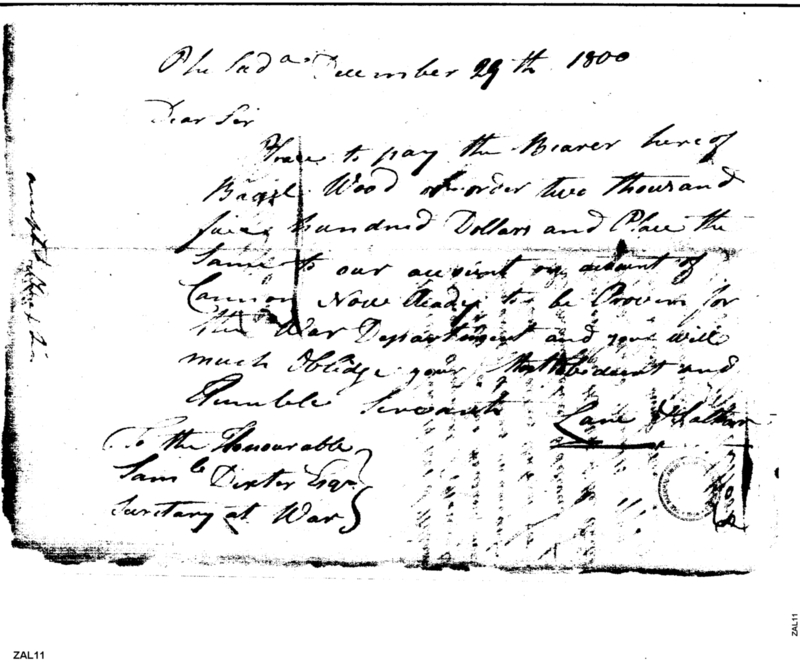 Philada December 29th 1800
Dear Sir
Please to pay the Bearer hereof
Bazzl Wood or order two thousand
five hundred Dollars and Place the
Same to our account on account of
Cannon Now Ready to be Proven for
the War Department and you will
much Oblidge your Most Obediant and
Humble Servants
Lane &
To the Honourable
Saml Dexter Esqr
Secretary at War
ZAL11
ZAL11